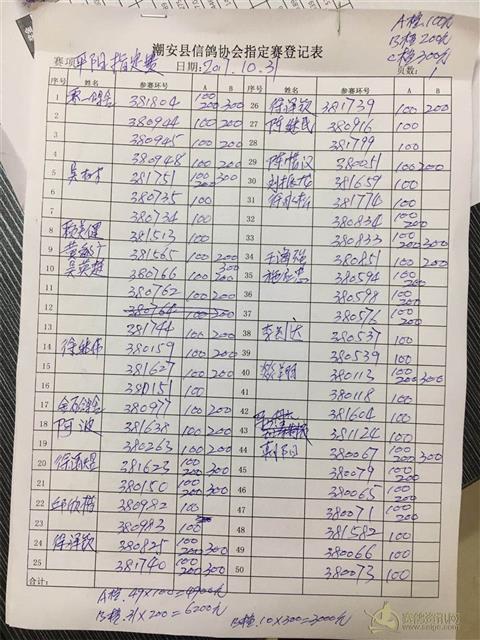 A栏.100元
B栏200元
C栏300元
潮安县信鸽协会指定赛登记表
赛项 平阳指定赛 日期:2017.10.31 页数: 1
序号 姓名 参赛环号 A B 序号 姓名 参赛环号 A B
1 381804 100 200 300 26 徐泽钦 381739 100 200
2 380944 100 200 27 陈继民 380916 100
3 380945 100 200 28 381799 100
4 380948 100 200 29 陈惜汉 380051 100 200
5 381751 100 200 300 30 381659 100
6 380735 100 31 381774 100
7 380734 100 32 380834 100 200
8 381513 100 33 380833 100 200 300
9 381565 100 200 34 380851 100 200
10 吴英雄 380766 100 200 300 35 380594 100 200
11 380762 100 200 36 380598 100 200
12 380764 100 200 37 380576 100 200
13 381744 100 200 38 380537 100
14 徐继伟 380159 100 200 39 380539 100
15 381627 100 200 40 380113 100 200 300
16 380151 100 41 380118 100
17 380977 100 200 42 381604 100
18 阿波 381638 100 200 43 381124 100
19 380263 100 200 44 380067 100 200 300
20 381623 100 200 300 45 380079 100 200
21 380150 100 200 300 46 380065 100 200
22 380982 100 47 380071 100 200
23 380983 100 48 381582 100
24 徐泽钦 380825 100 200 300 49 380066 100
25 381740 100 200 300 50 380073 100
合计:
A栏.49×100=4900元
B栏.31×200=6200元 10×300=3000元
赛鸽资讯网
www.saige.com